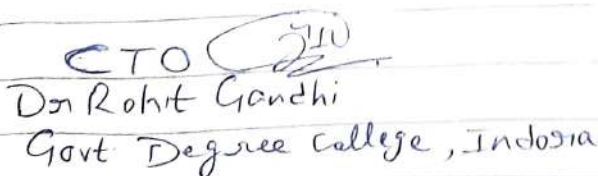 CTO
Dr Rohit Gandhi
Govt Degree College, Indora